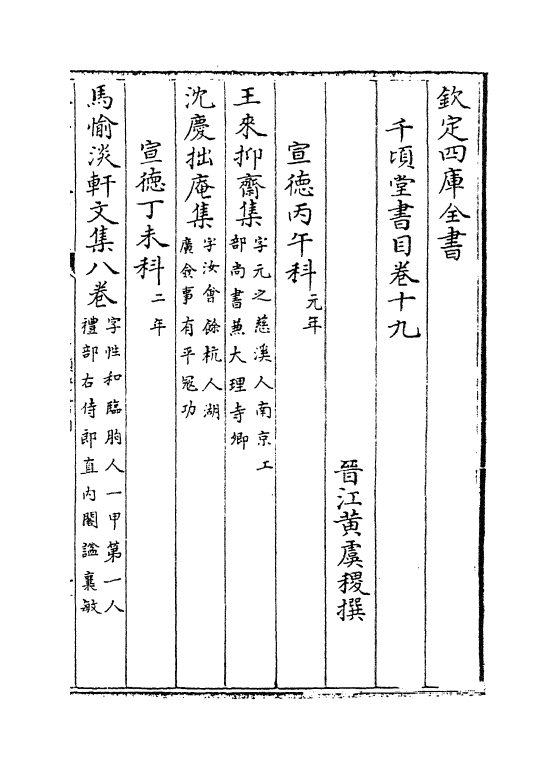 欽定四庫全書
千頃堂書目卷十九
晉江黄虞稷撰
宣德丙午科元年
王來抑齋集字元之慈溪人南京工
部尚書兼大理寺卿
沈慶拙庵集字汝會餘杭人湖
廣僉事有平冦功
宣德丁未科二年
馬愉淡軒文集八卷字性和臨朐人一甲第一人
禮部右侍郎直内閣謚襄敏